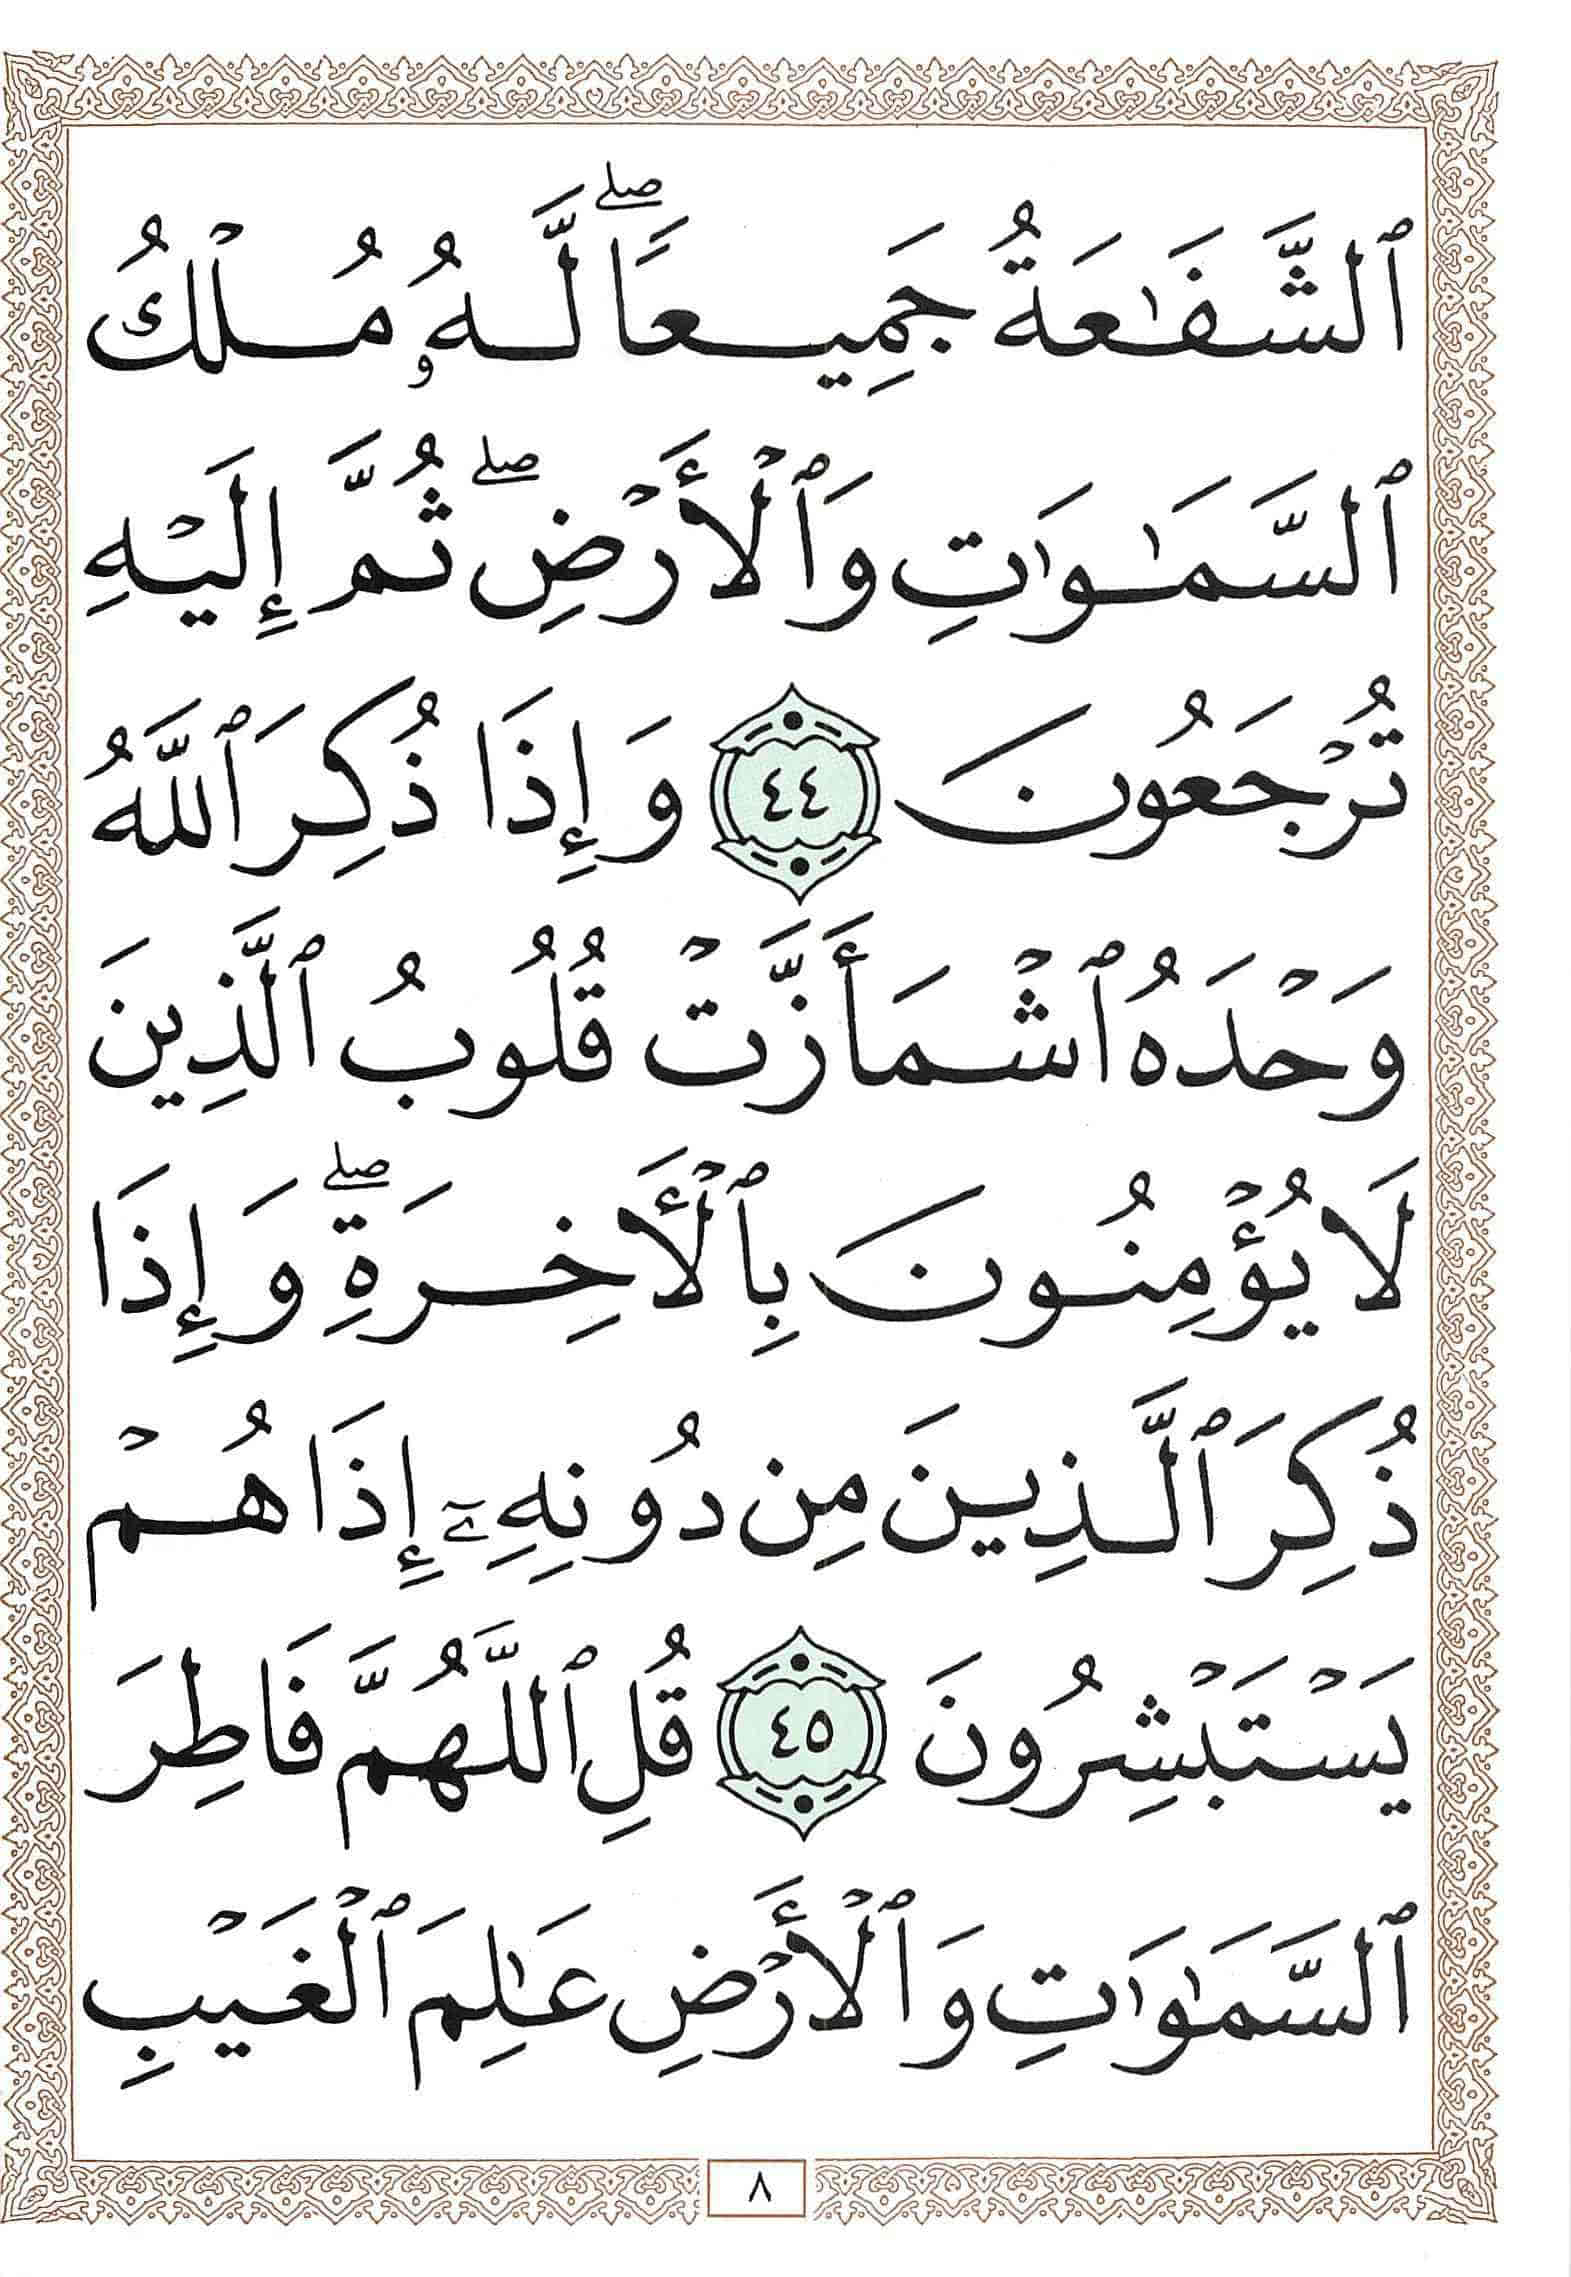 ٱلشَّفَـٰعَةُ جَمِيعًا ۖ لَّهُۥ مُلْكُ
ٱلسَّمَـٰوَٰتِ وَٱلْأَرْضِ ۖ ثُمَّ إِلَيْهِ
تُرْجَعُونَ ٤٤ وَإِذَا ذُكِرَ ٱللَّهُ
وَحْدَهُ ٱشْمَأَزَّتْ قُلُوبُ ٱلَّذِينَ
لَا يُؤْمِنُونَ بِٱلْأَخِرَةِ ۖ وَإِذَا
ذُكِرَ ٱلَّذِينَ مِن دُونِهِۦٓ إِذَا هُمْ
يَسْتَبْشِرُونَ ٤٥ قُلِ ٱللَّهُمَّ فَاطِرَ
ٱلسَّمَـٰوَٰتِ وَٱلْأَرْضِ عَـٰلِمَ ٱلْغَيْبِ
٨